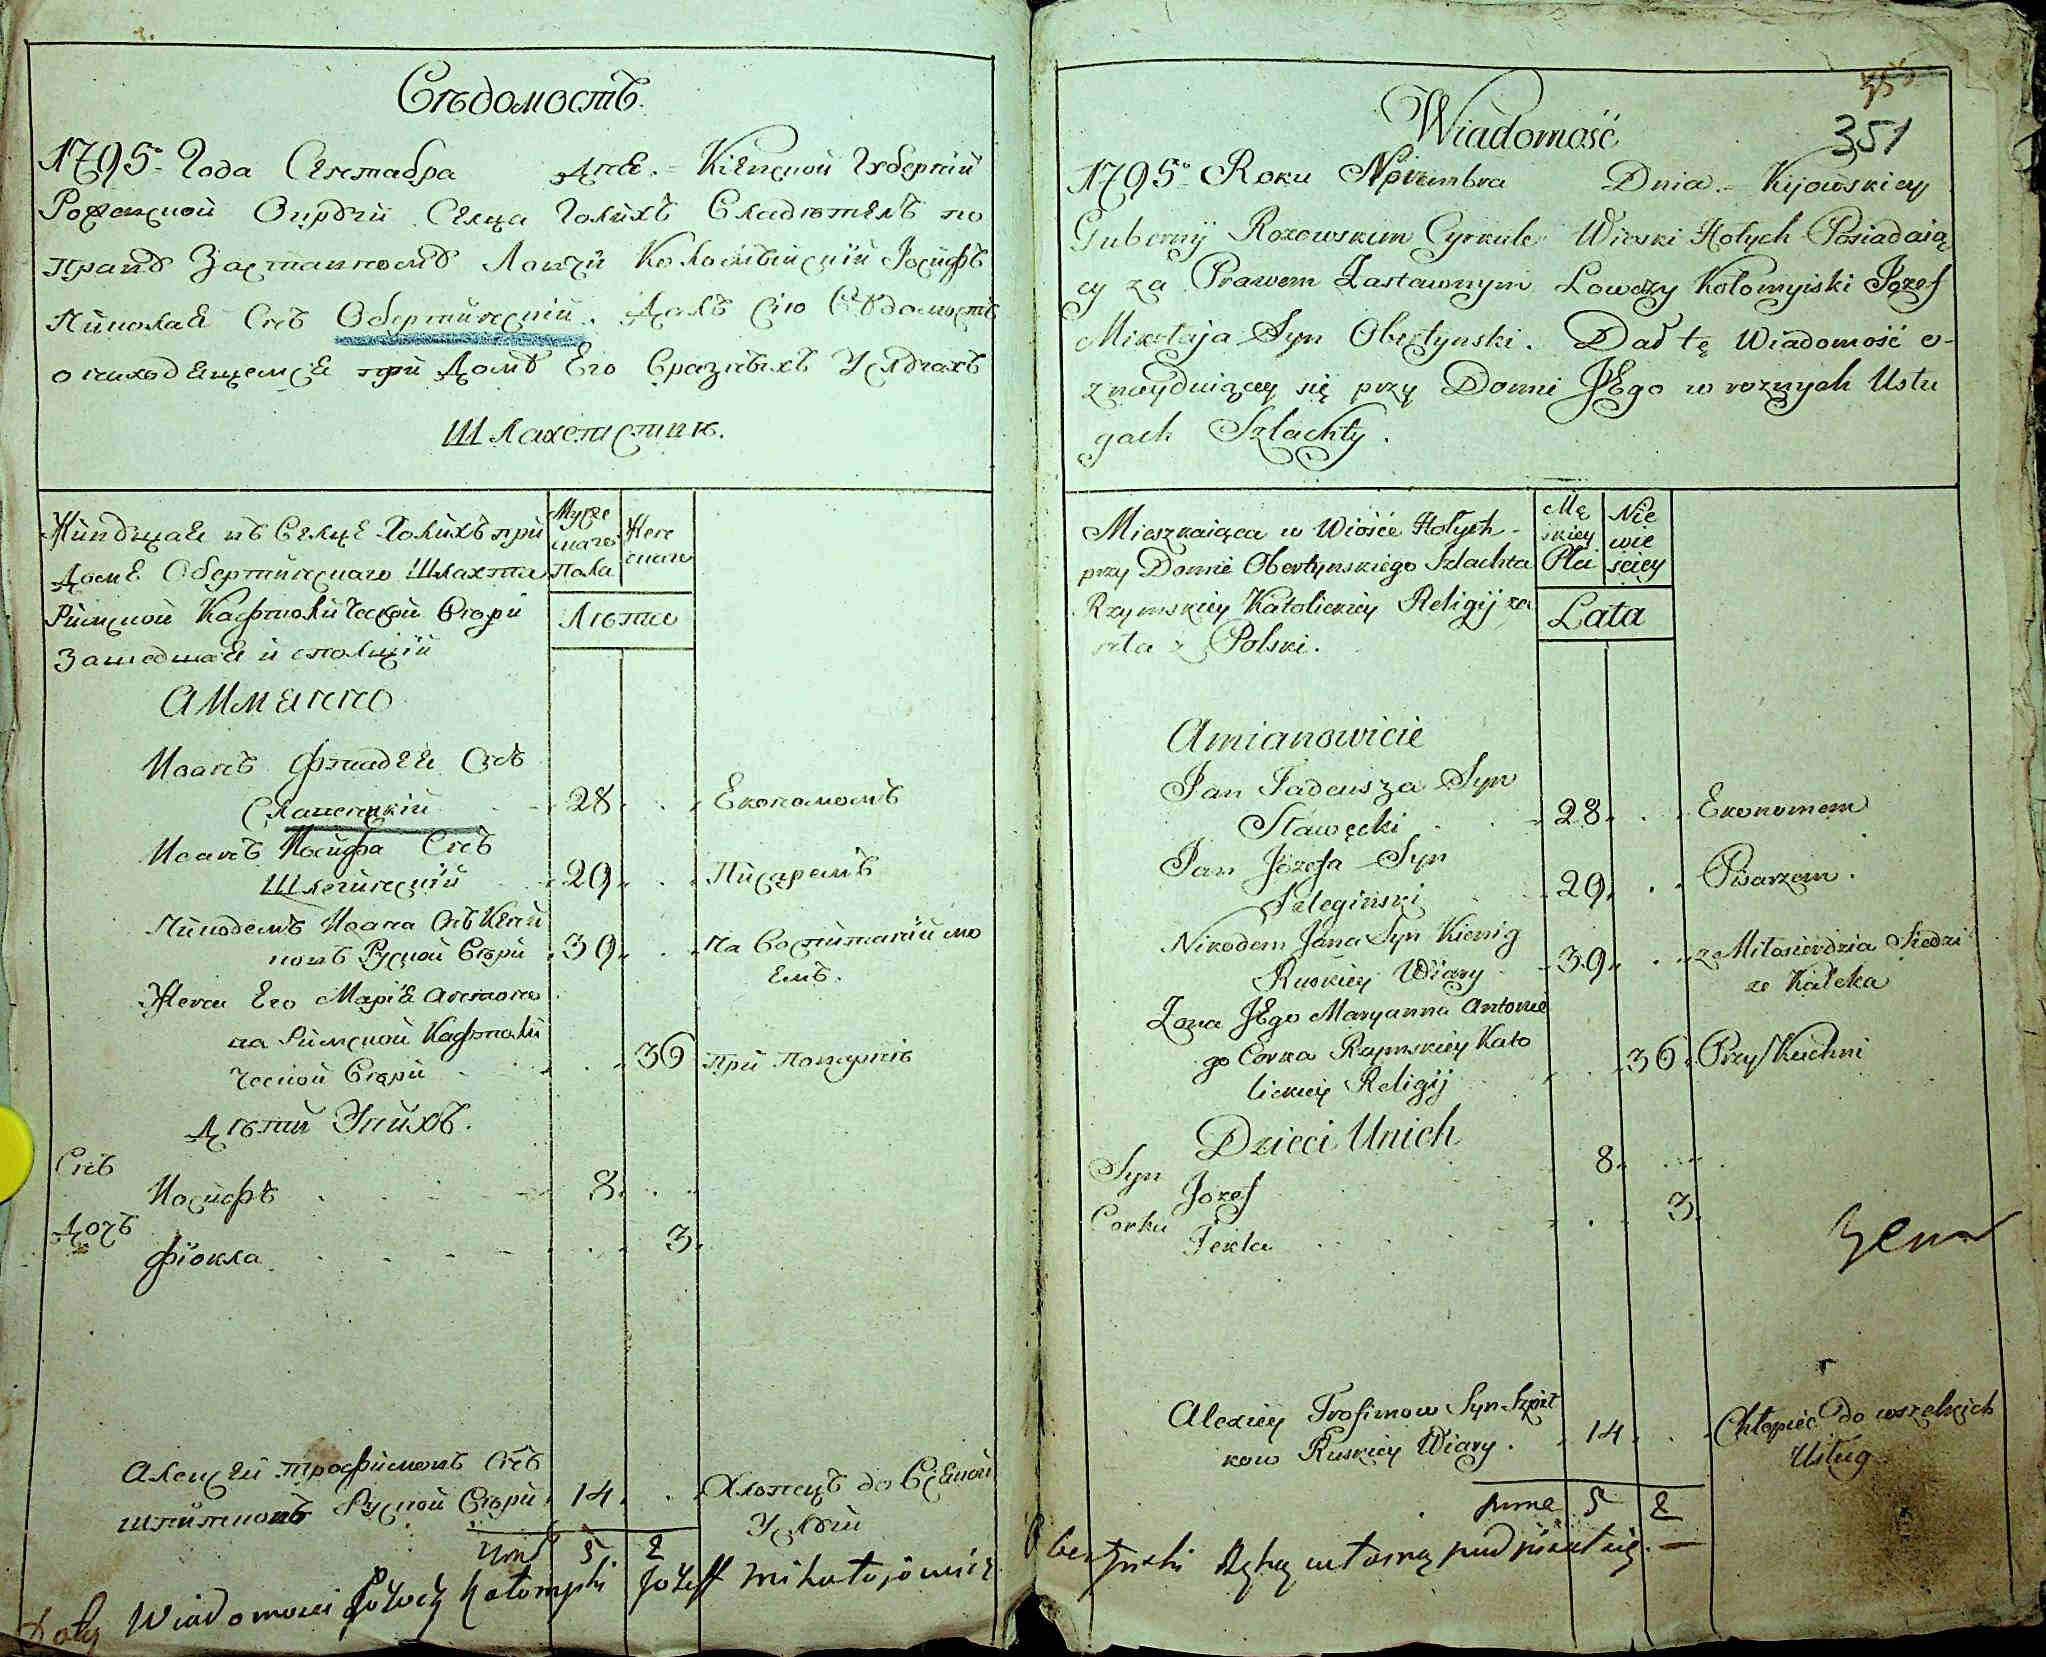 Вѣдомостъ.
1795 Года Сентабра Дня. Кіевской Губерніи
Селца Голихъ Владѣтель по
праву Заставному Ловчи Коломыйскій Іосифъ
Миколая Снъ Обертинскій. Далъ Сію Вѣдомость
о находящемся при Домѣ Его Вразныхъ Услугахъ
Шляхетствѣ.
Живущая въ Селцѣ Голихъ при
Домѣ Обертинскаго Шляхта
Римской Кафтолической Вѣри
Зашедшая и сполщій
Аимянно
Мужескаго Пола
Женскаго
Лѣта
Иванъ Фтадея Снъ
Славенцкій 28 Економомъ
Иванъ Иосифа Снъ
Шлегинскій 29 Писаремъ
Никодемъ Ивана Снъ
Руской Вѣри 39
Жена Его Маріа Антоно
ва Римской Кафтоли
ческой Вѣри 36 при
Дѣти Унихъ.
Снъ
Иосифъ 8
Дочъ
Фіокла 3
Алексѣй Трофимовъ Снъ
Шпитковъ Руской Вѣри 14 Хлопецъ до Всякой
Услуги
5 2
Wiadomosci Łowczy Kołomyski Jozeff Mikołajowicz
351
Wiadomość
1795 Roku Novembra Dnia Kijowskiey
Gubernij Rozowskim Cyrkule Wioski Hołych Posiadaią
cy za Prawem Zastawnym Łowczy Kołomyiski Jozef
Mikołaja Syn Obertynski. Dał tę Wiadomość o
znayduiącey się przy Domie JEgo w roznych Usłu
gach Szlachty.
Mieszkaiąca w Wiosce Hołych
przy Domie Obertynskiego Szlachta
Rzymskiey Katolickiey Religij za
szła z Polski.
Mę
skiey
Płci
Nie
wie
sciey
Lata
Amianowicie
Jan Tadeusza Syn
Sławęcki 28 Ekonomem
Jan Jozefa Syn
Szleginski 29 Pisarzem.
Nikodem Jana Syn Kienig
Ruskiey Wiary 39 z Miłosierdzia Siedzi
ze Kaleka
Zona JEgo Maryanna Antonie
go Corka Rzymskiey Kato
lickiey Religij 36 Przy Kuchni
Dzieci Unich
Syn
Jozef 8
Corka
Tekla 3
Alexiey Trofimow Syn Szpit
kow Ruskiey Wiary. 14 Chłopiec do wszelkich
Usług
suma 5 2
Obertynski Ręką własną podpisał się.